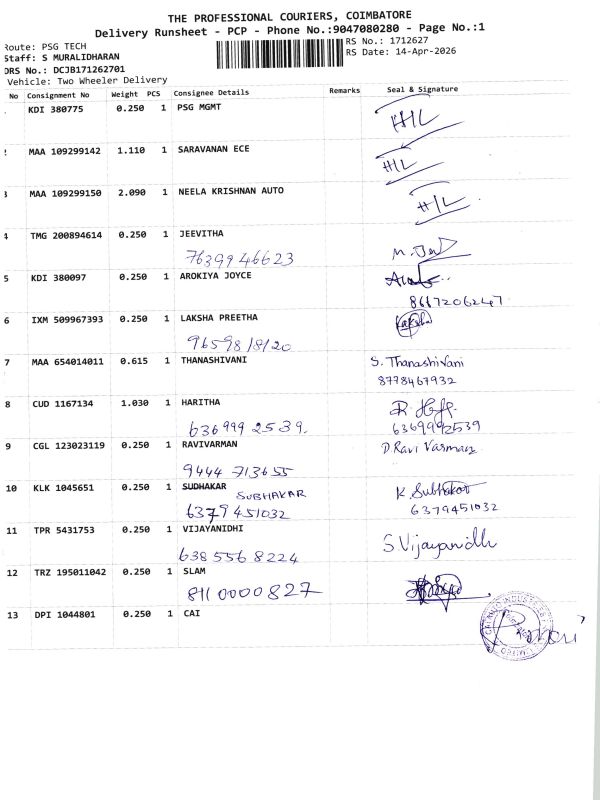 THE PROFESSIONAL COURIERS, COIMBATORE
Delivery Runsheet - PCP - Phone No.:9047080280 - Page No.:1
Route: PSG TECH
RS No.: 1712627
Staff: S MURALIDHARAN
RS Date: 14-Apr-2026
DRS No.: DCJB171262701
Vehicle: Two Wheeler Delivery
No Consignment No Weight PCS Consignee Details Remarks Seal & Signature
KDI 380775 0.250 1 PSG MGMT
H/L
MAA 109299142 1.110 1 SARAVANAN ECE
H/L
3 MAA 109299150 2.090 1 NEELA KRISHNAN AUTO
H/L
4 TMG 200894614 0.250 1 JEEVITHA
7639946623
5 KDI 380097 0.250 1 AROKIYA JOYCE
8667206247
6 IXM 509967393 0.250 1 LAKSHA PREETHA
Laksha
9659818120
7 MAA 654014011 0.615 1 THANASHIVANI S. Thanashivani
8778467932
8 CUD 1167134 1.030 1 HARITHA
6369992539. 6369992539
9 CGL 123023119 0.250 1 RAVIVARMAN D Ravi Varman
9444 713655
10 KLK 1045651 0.250 1 SUDHAKAR K. Subhakar
SUBHAKAR
6379451032 6379451032
11 TPR 5431753 0.250 1 VIJAYANIDHI S Vijayanidhi
638 556 8224
12 TRZ 195011042 0.250 1 SLAM
8110000827
13 DPI 1044801 0.250 1 CAI